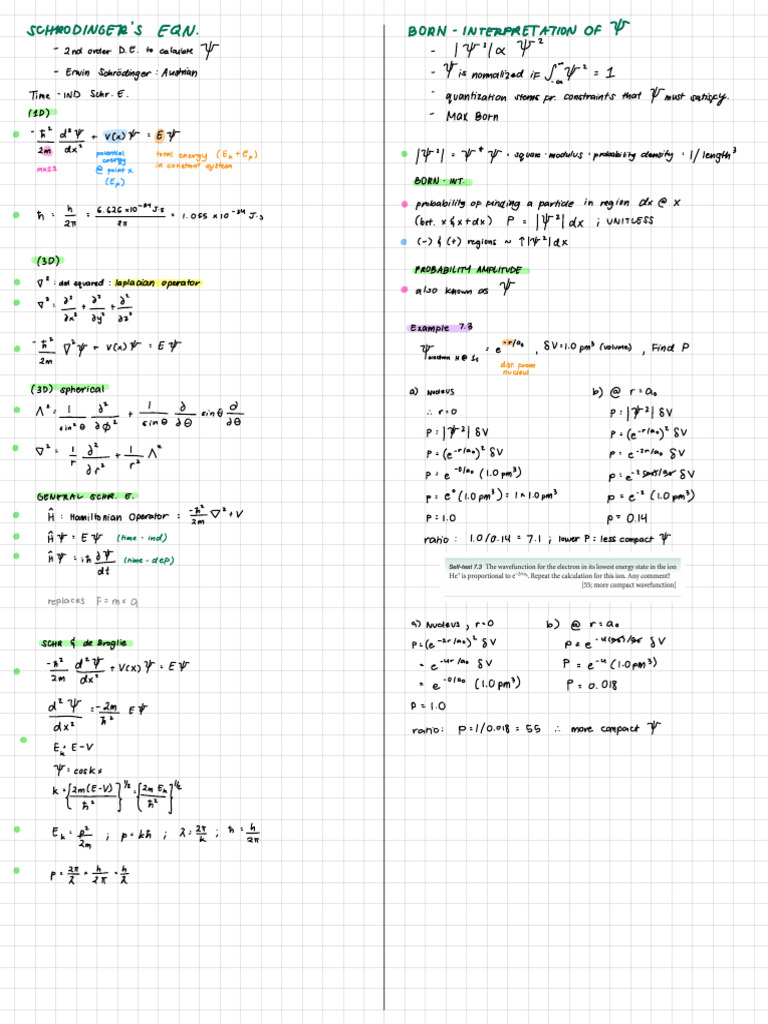 SCHRODINGER'S EQN.
- 2nd order D.E. to calculate Ψ
- Erwin Schrödinger : Austrian
Time - IND Schr. E.
(1D)
-ħ²/2m d²Ψ/dx² + V(x)Ψ = EΨ
mass
potential energy @ point x (Ep)
total energy (Ek + Ep) in constant system
ħ = h/2π = 6.626×10⁻³⁴ J·s/2π = 1.055 ×10⁻³⁴ J·s
(3D)
∇² : del squared : laplacian operator
∇² = ∂²/∂x² + ∂²/∂y² + ∂²/∂z²
-ħ²/2m ∇²Ψ + V(x)Ψ = EΨ
(3D) spherical
Λ² = 1/sin²θ ∂²/∂ϕ² + 1/sinθ ∂/∂θ sinθ ∂/∂θ
∇² = 1/r ∂²/∂r² r + 1/r² Λ²
GENERAL SCHR. E.
Ĥ : Hamiltonian Operator : -ħ²/2m ∇² + V
ĤΨ = EΨ (time - ind)
ĤΨ = iħ ∂Ψ/dt (time - dep)
replaces F = m × a
SCHR & de Broglie
-ħ²/2m d²Ψ/dx² + V(x)Ψ = EΨ
d²Ψ/dx² = -2m/ħ² EΨ
Ek = E - V
Ψ = cos kx
k = {2m(E-V)/ħ²}^1/2 = {2m Ek/ħ²}^1/2
Ek = p²/2m ; p = kħ ; λ = 2π/k ; ħ = h/2π
p = 2π/λ × h/2π = h/λ
BORN - INTERPRETATION OF Ψ
- |Ψ²| ∝ Ψ²
- Ψ is normalized if ∫-∞^∞ Ψ² = 1
- quantization stems fr. constraints that Ψ must satisfy.
- Max Born
|Ψ²| = Ψ* Ψ = square modulus = probability density = 1/length³
BORN - INT.
probability of finding a particle in region dx @ x
(bet. x & x+dx) P = |Ψ²| dx ; UNITLESS
(-) & (+) regions ~ ↑|Ψ²|dx
PROBABILITY AMPLITUDE
also known as Ψ
Example 7.3
Ψ electron H @ 1s = e^-r/a₀ , δV = 1.0 pm³ (volume) , Find P
dist. from nucleus
a) Nucleus
∴ r = 0
P = |Ψ²| δV
P = (e^-r/a₀)² δV
P = e^-0/a₀ (1.0 pm³)
P = e⁰ (1.0 pm³) = 1 × 1.0pm³
P = 1.0
b) @ r = a₀
P = |Ψ²| δV
P = (e^-r/a₀)² δV
P = e^-2r/a₀ δV
P = e^-2a₀/a₀ δV
P = e⁻² (1.0 pm³)
P = 0.14
ratio : 1.0/0.14 = 7.1 ; lower P : less compact Ψ
Self-test 7.3 The wavefunction for the electron in its lowest energy state in the ion
He⁺ is proportional to e^-2r/a₀. Repeat the calculation for this ion. Any comment?
[55; more compact wavefunction]
a) Nucleus, r = 0
P = (e^-2r/a₀)² δV
= e^-4r/a₀ δV
= e^-0/a₀ (1.0 pm³)
P = 1.0
b) @ r = a₀
P = e^-4(a₀)/a₀ δV
P = e⁻⁴ (1.0 pm³)
P = 0.018
ratio: P = 1/0.018 = 55 ∴ more compact Ψ